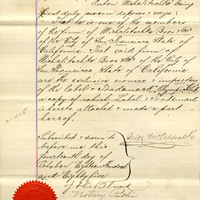 being
first duly sworn deposes & says:
That he is one of the members
of the firm of
of the City of San Francisco State of
California. That said firm of
of the City of
San Francisco State of California
are the exclusive owners & proprietors
of the label & Trademark
a copy of which Label & Trademark
is hereto attached and made a part
hereof.
Subscribed & sworn to
before me this
fourteenth day of
October Eighteen hundred
and Eighty five
Notary Public